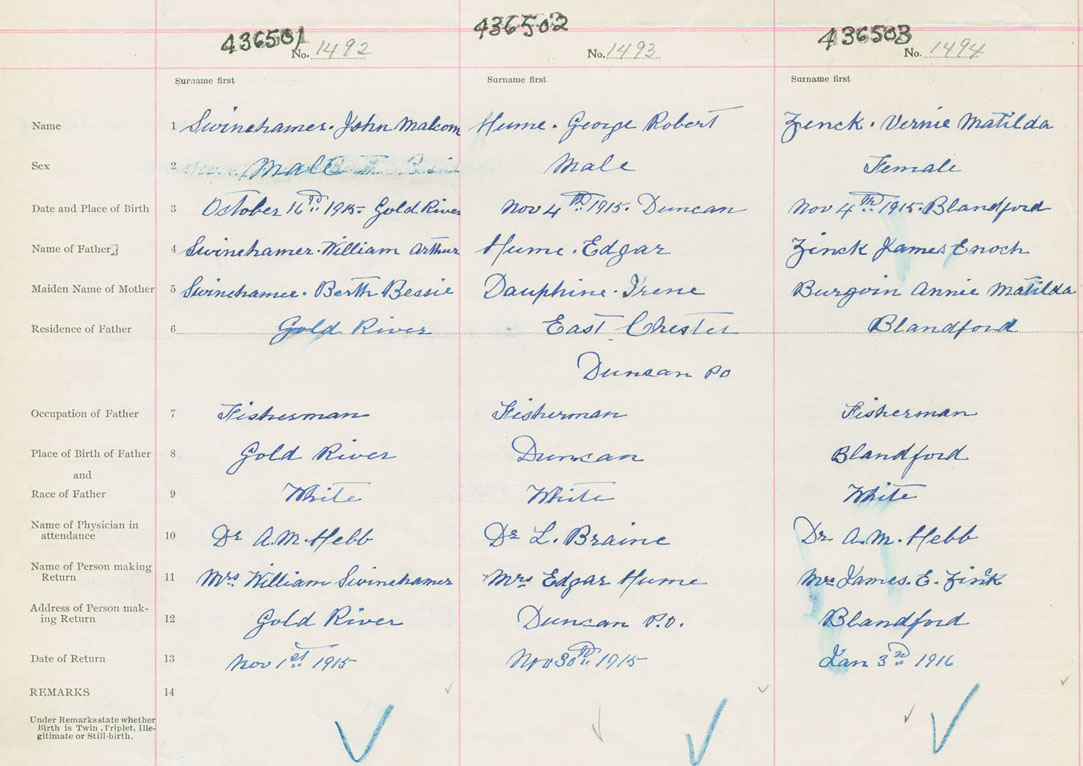 436501 436502 436503
No. 1492 No. 1493 No. 1494
Surname first Surname first Surname first
Name 1 Swinehamer. John Malcom Hume. George Robert Zinck. Vernie Matilda
Sex 2 Male Male Female
Date and Place of Birth 3 October 16th 1915. Gold River Nov 4th 1915. Duncan Nov 4th 1915. Blandford
Name of Father 4 Swinehamer. William Arthur Hume. Edgar Zinck James Enoch
Maiden Name of Mother 5 Swinehamer. Berth Bessie Dauphine. Irene Burgoin Annie Matilda
Residence of Father 6 Gold River East Chester Blandford
Duncan PO
Occupation of Father 7 Fisherman Fisherman Fisherman
Place of Birth of Father 8 Gold River Duncan Blandford
and
Race of Father 9 White White White
Name of Physician in
attendance 10 Dr A.M. Hebb Dr L. Braine Dr. A.M. Hebb
Name of Person making
Return 11 Mrs William Swinehamer Mrs Edgar Hume Mrs James. E. Zink
Address of Person mak-
ing Return 12 Gold River Duncan P.O. Blandford
Date of Return 13 Nov 1st 1915 Nov 30th 1915 Jan 3rd 1916
REMARKS 14
Under Remarks state whether
Birth is Twin, Triplet, Ille-
gitimate or Still-birth.